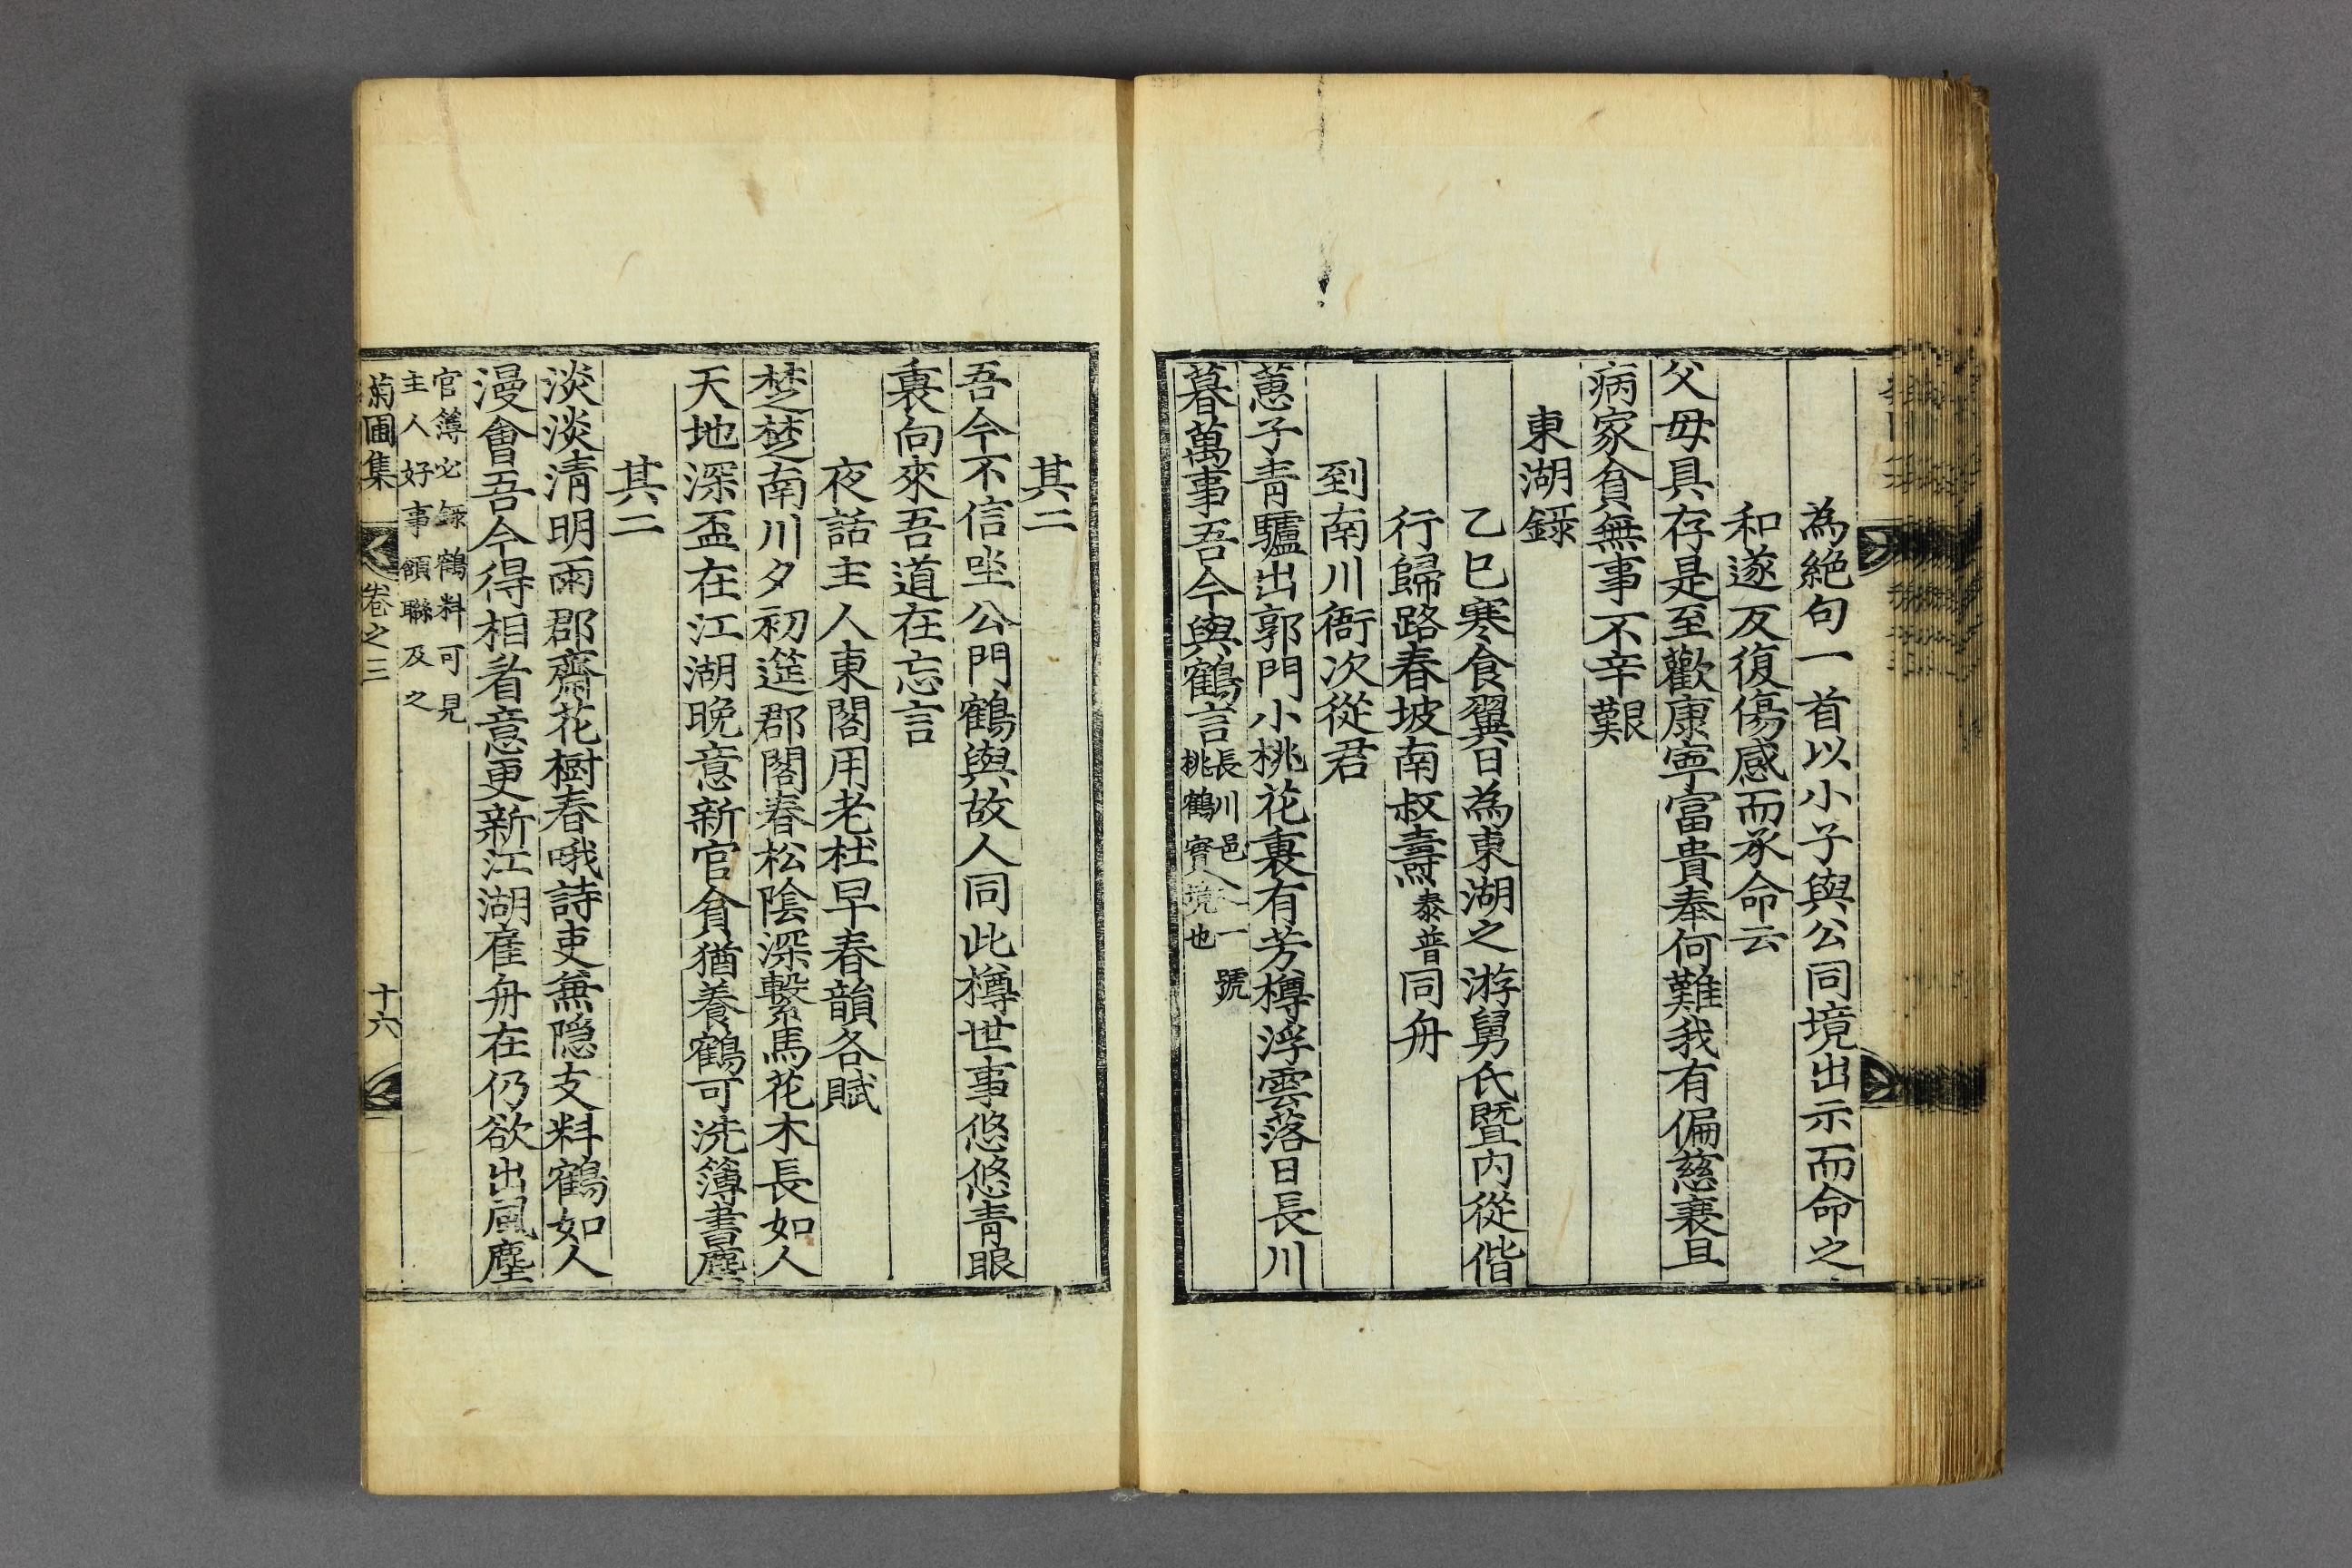 為絶句一首以小子與公同境出示而命之
和遂反復傷感而承命云
父母具存是至歡康寧富貴奉何難我有偏慈衰且
病家貧無事不辛艱
東湖録
乙巳寒食翼日為東湖之游舅氏暨内從偕
行歸路春坡南叔壽泰普同舟
到南川衙次從君
蔥子青驢出郭門小桃花裏有芳樽浮雲落日長川
暮萬事吾今與鶴言長川邑人一號
桃鶴實境也
其二
吾今不信坐公門鶴與故人同此樽世事悠悠青眼
裏向來吾道在忘言
夜話主人東閣用老杜早春韻各賦
楚楚南川夕初筵郡閣春松陰深繫馬花木長如人
天地深盃在江湖晩意新官貧猶養鶴可洗簿書塵
其二
淡淡清明雨郡齋花樹春哦詩吏無隠支料鶴如人
漫會吾今得相看意更新江湖隺舟在仍欲出風塵
官簿必錄鶴料可見
主人好事頷聯及之
菊圃集
卷之三
十六